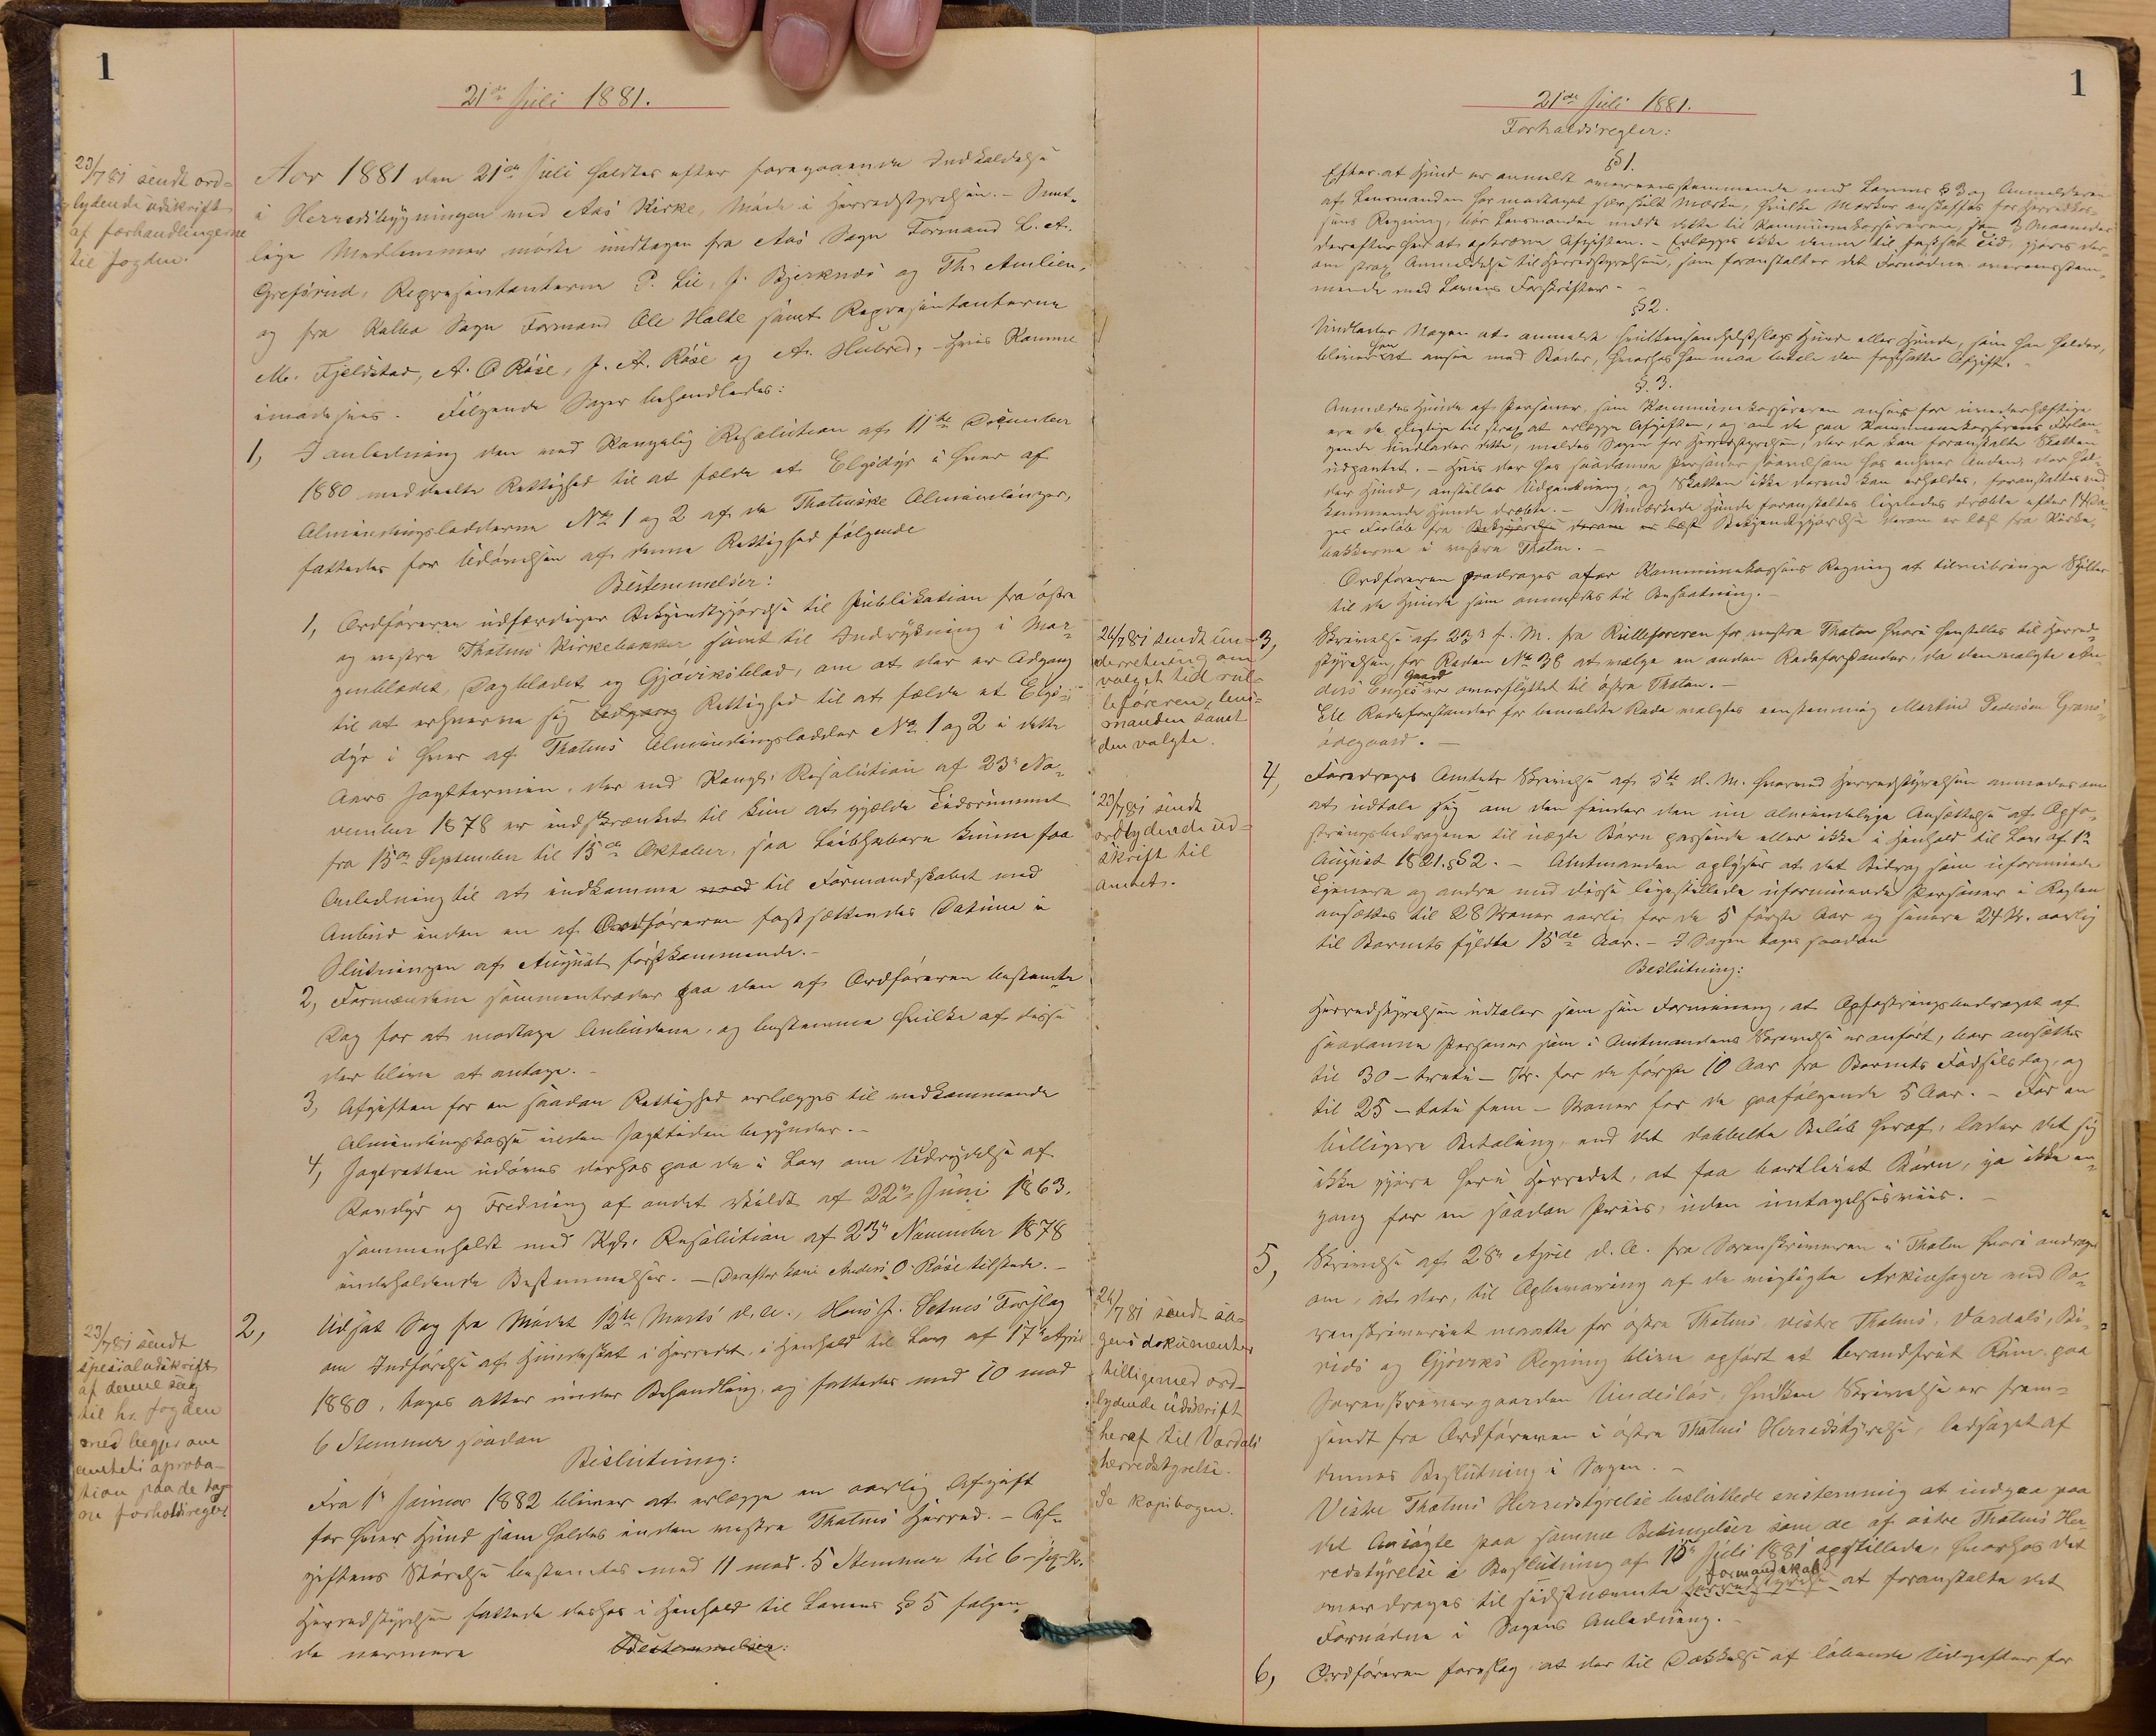 1
21de Juli 1881.
23/7 81 sendt ord-
lydende udskrift
af forhandlingerne
til fogden.
Aar 1881 den 21de Juli holdtes efter foregaaende Indkaldelse
i Herredsbygningen ved Aas Kirke, Møde i Herredstyrelsen. - Samt-
lige Medlemmer mødte undtagen fra Aas Sogn Formand L. A.
Grefsrud, Repræsentanterne P. Lie, J. Bjerknæs og Th. Amlien,
og fra Kolbo Sogn Formand Ole Holte samt Repræsentanterne
M. Fjeldstad, A. O Røise, J. A. Røise og A. Hubred, - hvis Komme
imødesees. Følgende Sager behandledes:
1, I anledning den ved Kongelig Resolution af 11te December
1880 meddeelte Rettighed til at fælde et Elgsdyr i hver af
Almindingslodderne No 1 og 2 af de Thotenske Almindinger,
fattedes for Udøvelsen af denne Rettighed følgende
Bestemmelser:
1, Ordføreren udfærdiger Bekjendtgjørelse til Publikation fra østre
og vestre Thotens Kirkebakker samt til Indrykning i Mor-
genbladet, Dagbladet og Gjøviks blad, om at der er Adgang
til at erhverve sig Adgang Rettighed til at fælde et Elgs-
dyr i hver af Thotens Almindingslodder No 1 og 2 i dette
Aars Jagttermin, der ved Kongl. Resolution af 23de No-
vember 1878 er indskrænket til kun at gjælde Tidsrummet
fra 15de September til 15de Oktober, saa Liebhabere kunne faa
Anledning til at indkomme med til Formandskabet med
Anbud inden en af Ordføreren fastsættendes Datum i
Slutningen af August førstkommende. -
2, Formændene sammentræder paa den af Ordføreren bestemte
Dag for at modtage Anbudene, og bestemme hvilke af disse
der blive at antage. -
3, Afgiften for en saadan Rettighed erlægges til vedkommende
Almindingskasse inden Jagttiden begynder. -
4, Jagtretten udøves derhos paa de i Lov om Udryddelse af
Rovdyr og Fredning af andet Vildt af 22de Juni 1863,
sammenholdt med Kgl. Resolution af 23de November 1878
indeholdende Bestemmelser. - Derefter kom Anders O. Røise tilstede. -
23/7 81 sendt
spesialudskrift
af denne sag
til hr. fogden
med begjær om
amtets aproba-
tion paa de tag-
ne forholdsregler
2, Udsat Sag fra Mødet 12te Marts d. A., Hans J. Setnes Forslag
om Indførelse af Hundeskat i Herredet, i Henhold til Lov af 17de April
1880, toges atter under Behandling, og fattedes med 10 mod
6 Stemmer saadan
Beslutning:
Fra 1de Januar 1882 bliver at erlægge en aarlig Afgift
for hver Hund som holdes inden vestre Thotens Herred. - Af-
giftens Størelse bestemtes med 11 mod 5 Stemmer til 6 - sex - Kr.
Herredstyrelsen fattede derhos i Henhold til Lovens § 5 følgen-
de nærmere Bestemmelser:
1
21de Juli 1881.
Forholdsregler:
§ 1.
Efter at Hund er anmeldt overensstemmende med Lovens § 3 og Anmelderen
af Lensmanden har modtaget særskilt Mærke, hvilke Mærker anskaffes for Herredskas-
sens Regning, bør Lensmanden melde dette til Kommunekassereren, som 3 Maaneder
derefter har at opkræve Afgiften. - Erlægges ikke denne til fastsat Tid, gjøres der-
om strax Anmeldelse til Herredstyrelsen, som foranstalter det Fornødne overensstem-
mende med Lovens Forskrifter. -
§ 2.
Undlader Nogen at anmelde hvilkensomhelst Hund eller Hunde, som han holder,
bliver han at ansee med Bøder, hvorhos han maa betale den fastsatte Afgift. -
§. 3.
Anmeldes Hunde af Personer, som Kommunekassereren anser for uvederhæftige
ere de pligtige til strax at erlægge Afgiften, og om de paa Kommunekassererens Forlan-
gende undlader dette, meldes Sagen for Herredstyrelsen, der da kan foranstalte Skatten
udpantet. - Hvis der hos saadanne Personer saavelsom hos enhver Anden, der hol-
der Hund, anstilles Udpantning, og Skatten ikke derved kan erholdes, foranstaltes ved-
kommende Hunde dræbte. - Umærkede Hunde foranstaltes ligeledes dræbte efter 14 Da-
ges Forløb fra Bekgjørelse derom er læst Bekjendtgjørelse derom er læst fra Kirke-
bakkerne i vestre Thoten. -
Ordføreren paadrages at for Kommunekassens Regning at tilveiebringe Skilter
til de Hunde som anmeldes til Beskatning. -
24/7 81 sendt un-
derretning om
valget til rul-
leføreren, lens-
manden samt
den valgte.
3, Skrivelse af 23de f. M. fra Rulleføreren for vestre Thoten hvori henstilles til Herred-
styrelsen, for Roden No 38 at vælge en anden Rodeforstander, da den valgte An-
ders Engesgaard er overflyttet til østre Thoten. -
Til Rodeforstander for bemeldte Rode valgtes eenstemmig Martin Pedersen Grans-
ødegaard. -
23/7 81 sendt
ordlydende ud-
skrift til
amtet.
4, Foredrages Amtets Skrivelse af 5te d. M. hvorved Herredstyrelsen anmodes om
at udtale sig om den finder den nu almindelige Ansættelse af Opfo-
stringsbidragene til uægte Børn passende eller ikke i Henhold til Lov af 1de
August 1821. § 2. - Amtmanden oplyser at det Bidrag som uformuende
Tjenere og andre med disse ligestillede uformuende Personer i Reglen
ansættes til 28 Kroner aarlig for de 5 første Aar og senere 24 Kr. aarlig
til Barnets fyldte 15de Aar. - I Sagen toges saadan
Beslutning:
Herredstyrelsen udtaler som sin Formening, at Opfostringsbidraget af
saadanne Personer som i Amtmandens Skrivelse er anført, bør ansættes
til 30 - treti - Kr. for de første 10 Aar fra Barnets Fødselsdag, og
til 25 - toti fem - Kroner for de paafølgende 5 Aar. - For en
billigere Betaling, end det dobbelte Beløb heraf, lader det sig
ikke gjøre her i Herredet, at faa bortleiet Børn, ja ikke en-
gang for en saadan Priis, uden undtagelsesviis. -
24/7 81 sendt sa-
gens dokumenter
tilligemed ord-
lydende udskrift
heraf til Vardals
herredstyrelse.
Se kopibogen.
5, Skrivelse af 28de April d. A. fra Sorenskriveren i Thoten hvori andrages
om, at der, til Opbevaring af de vigtigste Arkivsager ved So-
renskriveriet maatte for østre Thotens, vestre Thotens, Vardals, Bi-
rids og Gjøviks Regning blive opført et brandfrit Rum paa
Sorenskrivergaarden Lindelös, hvilken Skrivelse er frem-
sendt fra Ordføreren i østre Thotens Herredstyrelse, ledsaget af
dennes Beslutning i Sagen. -
Vestre Thotens Herredstyrelse besluttede enstemmig at indgaa paa
det Ansøgte paa samme Betingelser som de af østre Thotens Her-
redstyrelse i Beslutning af 15de Juli 1881 opstillede, hvorhos det
overdrages til sidstnævnte Herredstyrelse formandskab at foranstalte det
Fornødne i Sagens Anledning. -
6, Ordføreren foreslog at der til Dækkelse af løbende Udgifter for